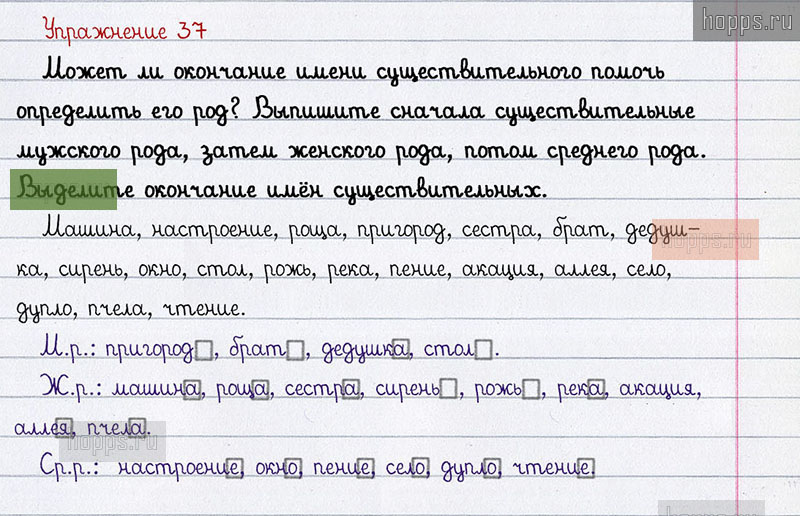 hopps.ru
Упражнение 37
Может ли окончание имени существительного помочь
определить его род? Выпишите сначала существительные
мужского рода, затем женского рода, потом среднего рода.
Выделите окончание имён существительных.
Машина, настроение, роща, пригород, сестра, брат, дедуш-
hopps.ru
ка, сирень, окно, стол, рожь, река, пение, акация, аллея, село,
дупло, пчела, чтение.
М.р.: пригород, брат, дедушка, стол.
Ж.р.: машина, роща, сестра, сирень, рожь, река, акация,
аллея, пчела.
hopps.ru
Ср.р.: настроение, окно, пение, село, дупло, чтение.
hopps.ru